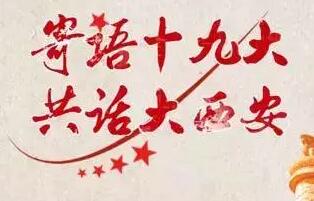 寄语十九大
共话大西安